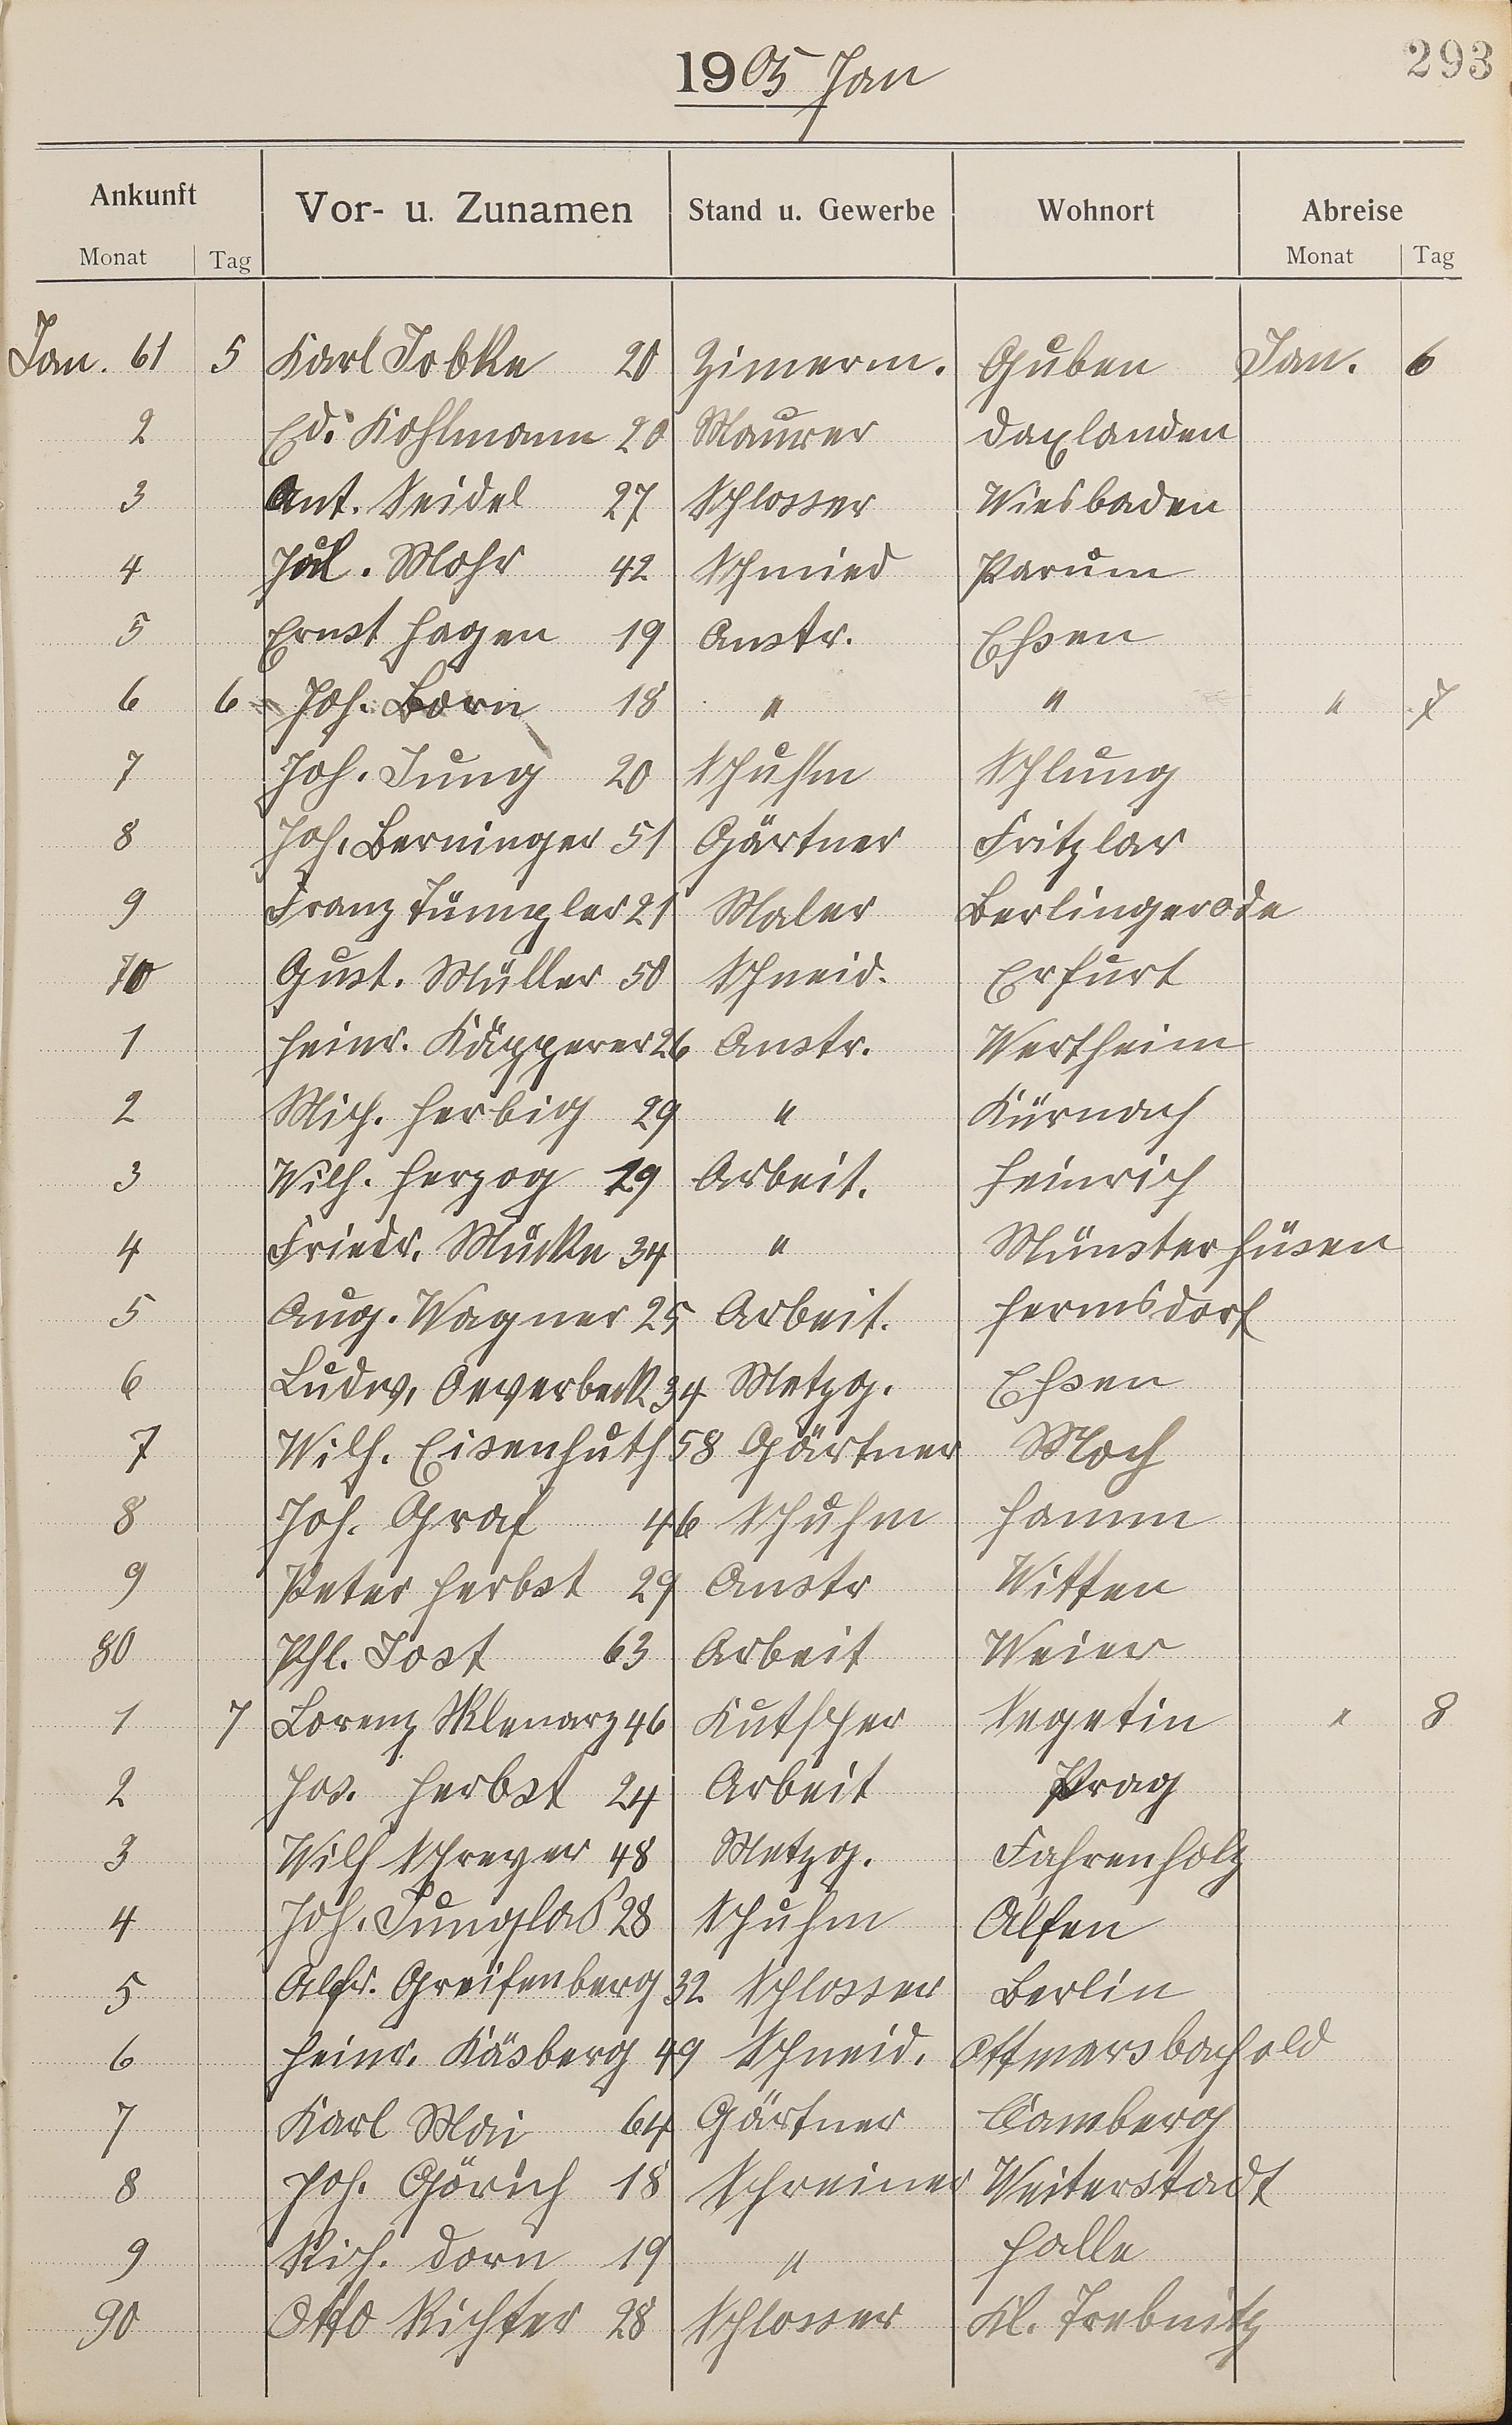 293
1905 Jan
Ankunft Vor- u. Zunamen Stand u. Gewerbe Wohnort Abreise
Monat Tag Monat Tag
Jan. 61 5 Karl Jobke 20 Zimerm. Guben Jan. 6
2 Ed. Kohlmann 20 Maurer Daxlanden
3 Ant. Seidel 27 Schlosser Wiesbaden
4 Jul. Mohr 42 Schmied Parum
5 Ernst Hagen 19 Anstr. Essen
6 6 Joh. Born 18 " " " 7
7 Joh. Jung 20 Schuhm Schlung
8 Joh. Berninger 51 Gärtner Fritzlar
9 Franz Tümpler 21 Maler Berlingerode
70 Gust. Müller 50 Schneid. Erfurt
1 Heinr. Käpperer 26 Anstr. Wertheim
2 Mich. Herbig 29 " Kürnach
3 Wilh. Herzog 29 Arbeit. Heinrich
4 Friedr. Mücke 34 " Münsterhüsen
5 Aug. Wagner 25 Arbeit. Hermsdorf
6 Ludw. Oeverbeck 34 Metzg. Essen
7 Wilh. Eisenhuth 58 Gärtner Moch
8 Joh. Graf 46 Schuhm Hamm
9 Peter Herbst 29 Anstr Witten
80 Phl. Jost 63 Arbeit Weier
1 7 Lorenz Sklenarz 46 Kutscher Negetin " 8
2 Jos. Herbst 24 Arbeit Prag
3 Wilh Schreyer 48 Metzg. Fahrenholz
4 Joh. Junglaß 28 Schuhm Alfen
5 Alfr. Greifenberg 32 Schlosser Berlin
6 Heinr. Käsberg 49 Schneid. Ottmarsbochold
7 Karl Mai 64 Gärtner Camberg
8 Joh. Görich 18 Schreiner Weiterstadt
9 Rich. Dorn 19 " Halle
90 Otto Richter 28 Schlosser Kl. Trebnitz